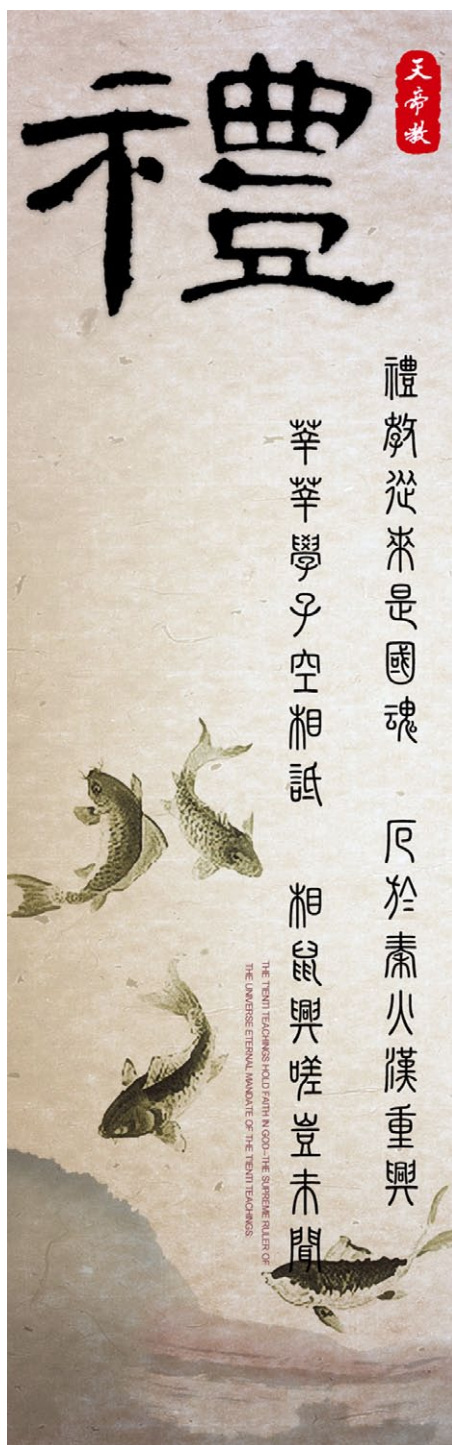 禮
天帝教
禮教從來是國魂 厄於秦火漢重興
莘莘學子空相詆 相鼠興嗟豈未聞
THE TIENTI TEACHINGS HOLD FAITH IN GOD--THE SUPREME RULER OF
THE UNIVERSE ETERNAL MANDATE OF THE TIENTI TEACHINGS